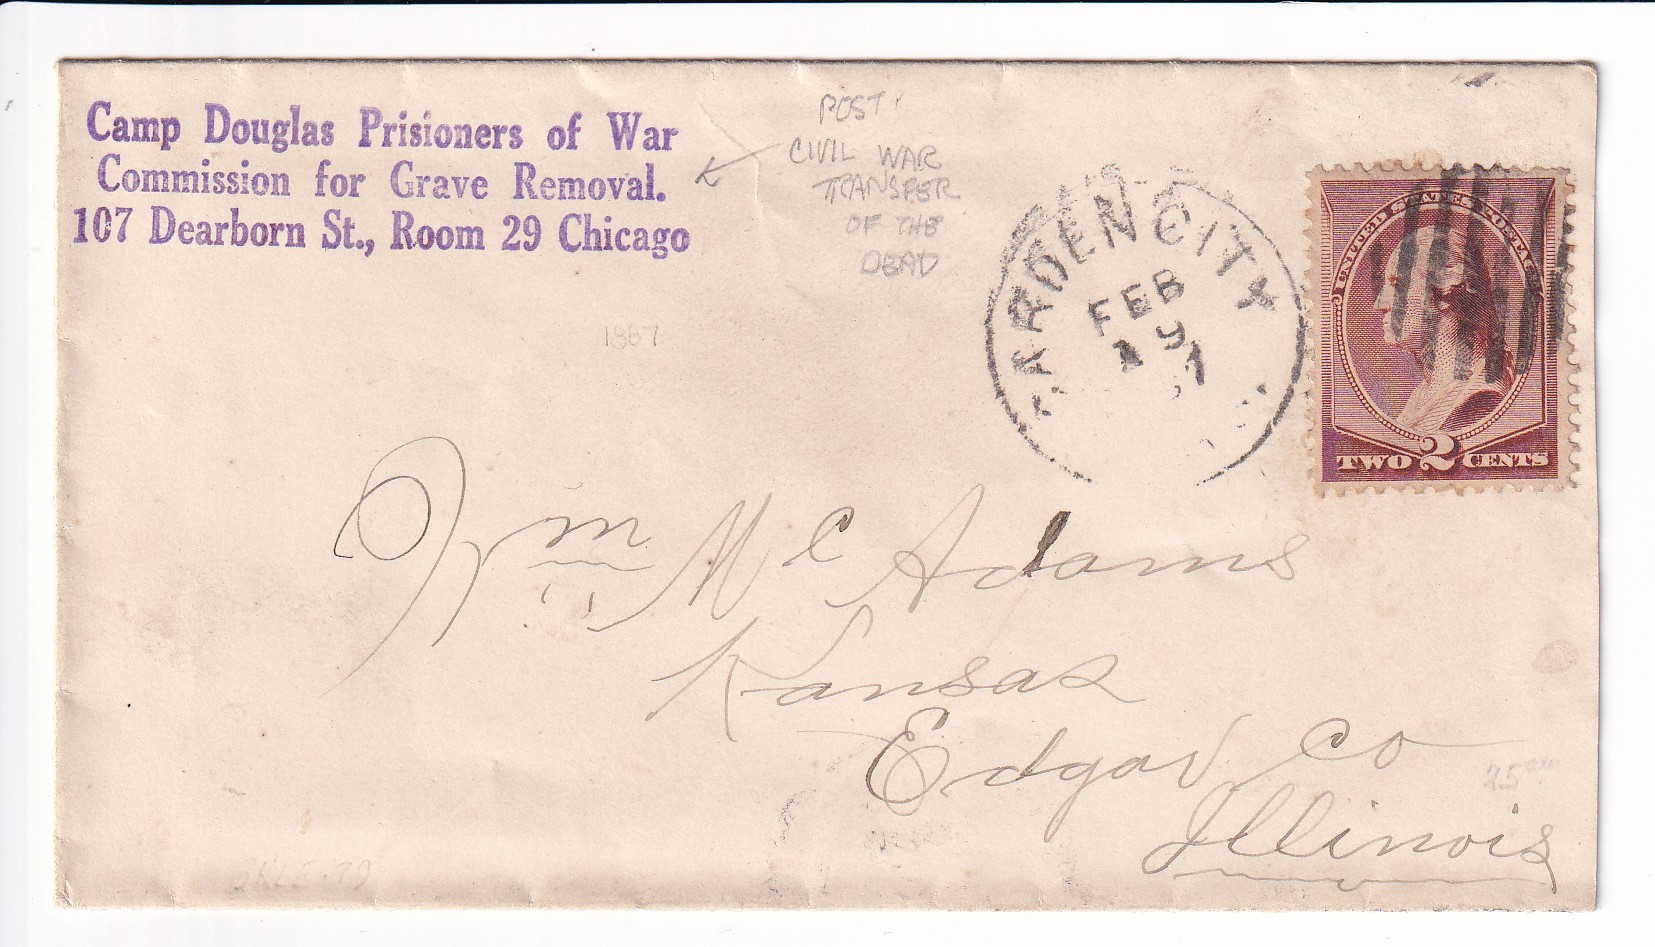 Camp Douglas Prisioners of War
Commission for Grave Removal.
107 Dearborn St., Room 29 Chicago
POST
CIVIL WAR
TRANSFER
OF THE
DEAD
1887
GARDEN CITY
FEB
19
UNITED STATES POSTAGE
TWO 2 CENTS
Wm McAdams
Kansas
Edgar Co
Illinois